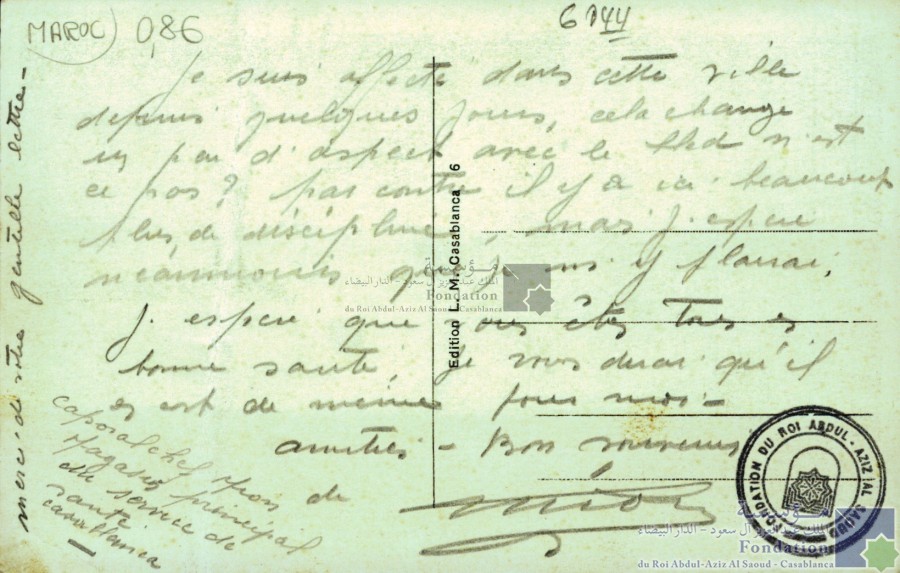 MAROC 0,86
6144
Je suis affecté dans cette ville
depuis quelques jours, cela change
un peu d'aspect avec le Sud n'est
ce pas? par contre il y a ici beaucoup
plus de discipline, mais j'espère
néanmoins que je m'y plairai.
J'espère que vous êtes tous en
bonne santé, je vous dirai qu'il
en est de même pour moi -
amitiés - Bon souvenir
de
caporal chef
Magasin principal
du service de
santé
casablanca
merci de votre gentille lettre -
Edition L. M. Casablanca 6
مؤسسة
الملك عبد العزيز آل سعود - الدار البيضاء
Fondation
du Roi Abdul-Aziz Al Saoud - Casablanca
FONDATION DU ROI ABDUL-AZIZ AL SAOUD
مؤسسة
الملك عبد العزيز آل سعود - الدار البيضاء
Fondation
du Roi Abdul-Aziz Al Saoud - Casablanca